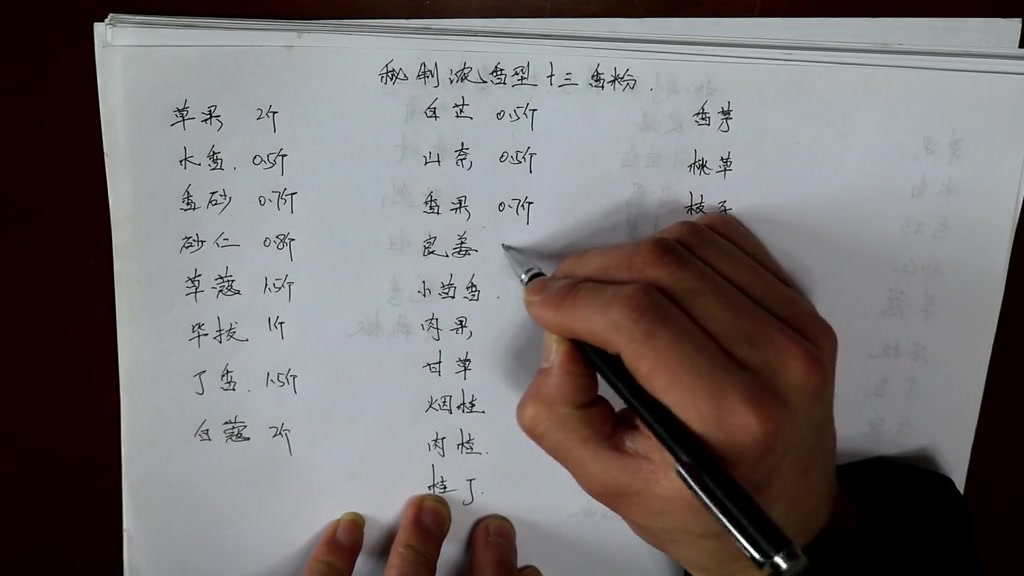 秘制浓香型十三香粉.
草果 2个
水香. 0.5个
香砂 0.7个
砂仁 0.8个
草蔻 1.5个
毕拔 1个
丁香. 1.5个
白蔻 2个
白芷 0.5个
山奈 0.5个
香果 0.7个
良姜
小茴香.
肉果
甘草
烟桂
肉桂.
桂丁.
香茅
桃草
枝子